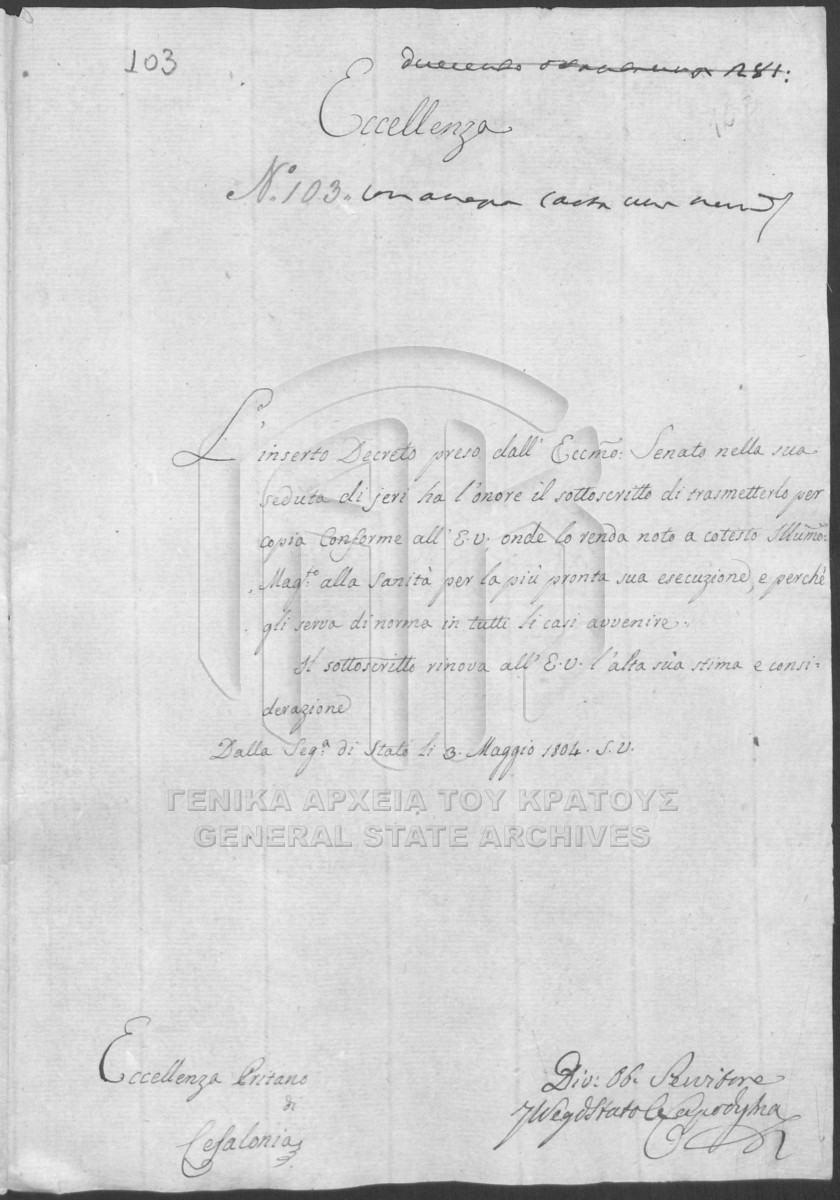 103
duecento ottantuno 281:
Eccellenza
N.º 103. con annessa carta una
L'inserto Decreto preso dall' Eccmo: Senato nella sua
seduta di jeri ha l'onore il sottoscritto di trasmetterlo per
copia conforme all' E.V. onde lo renda noto a cotesto Illumo:
Magto: alla Sanità per la più pronta sua esecuzione, e perchè
gli serva di norma in tutti li casi avvenire.
Il sottoscritto rinova all' E.V. l'alta sua stima e consi-
derazione
Dalla Segª di Stato li 3. Maggio 1804. S.V.
ΓΕΝΙΚΑ ΑΡΧΕΙΑ ΤΟΥ ΚΡΑΤΟΥΣ
GENERAL STATE ARCHIVES
Eccellenza Pritano
di
Cefalonia
Div: Obb. Servitore